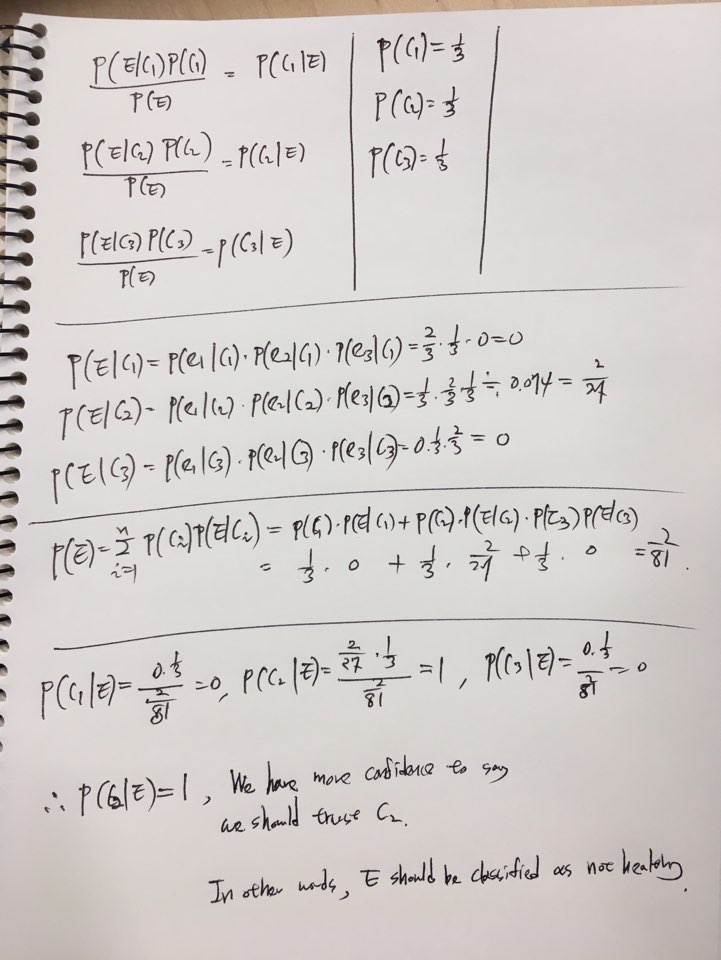 P(E|C₁)P(C₁)/P(E) = P(C₁|E)
P(E|C₂) P(C₂)/P(E) = P(C₂|E)
P(E|C₃) P(C₃)/P(E) = P(C₃|E)
P(C₁) = 1/3
P(C₂) = 1/3
P(C₃) = 1/3
P(E|C₁) = P(e₁|C₁)·P(e₂|C₁)·P(e₃|C₁) = 2/3 · 1/3 · 0 = 0
P(E|C₂) = P(e₁|C₂)·P(e₂|C₂)·P(e₃|C₂) = 1/3 · 2/3 · 1/3 ≒ 0.074 = 2/27
P(E|C₃) = P(e₁|C₃)·P(e₂|C₃)·P(e₃|C₃) = 0·1/3·2/3 = 0
P(E) = Σⁿᵢ₌₁ P(Cᵢ)P(E|Cᵢ) = P(C₁)·P(E|C₁) + P(C₂)·P(E|C₂)·P(C₃)P(E|C₃)
= 1/3 · 0 + 1/3 · 2/27 + 1/3 · 0 = 2/81.
P(C₁|E) = (0·1/3)/(2/81) = 0, P(C₂|E) = (2/27 · 1/3)/(2/81) = 1, P(C₃|E) = (0·1/3)/(2/81) = 0
∴ P(C₂|E) = 1, We have more confidence to say
we should trust C₂.
In other words, E should be classified as not healthy.